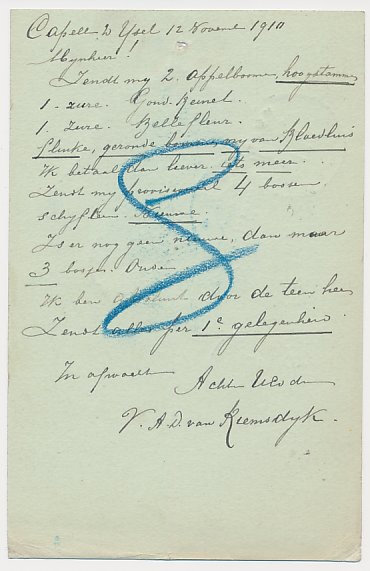 Capelle d Ysel 12 Novemb 1910
Mynheer!
Zendt my 2 appelboomen, hoogstammen
1. zure. Goud Reinet.
1. zure. Bellefleur.
Flinke, gezonde boomen, my van bloedluis
Ik betaal dan liever iets meer.
Zendt my provisioneel 4 bossen
schyffeen Nieuwe.
Is er nog geen nieuwe, dan maar
3 bosjes Oude
Ik ben door de teen heen
Zendt alles per 1e gelegenheid.
In afwacht
Acht Uw d
V. A. D. van Riemsdyk.